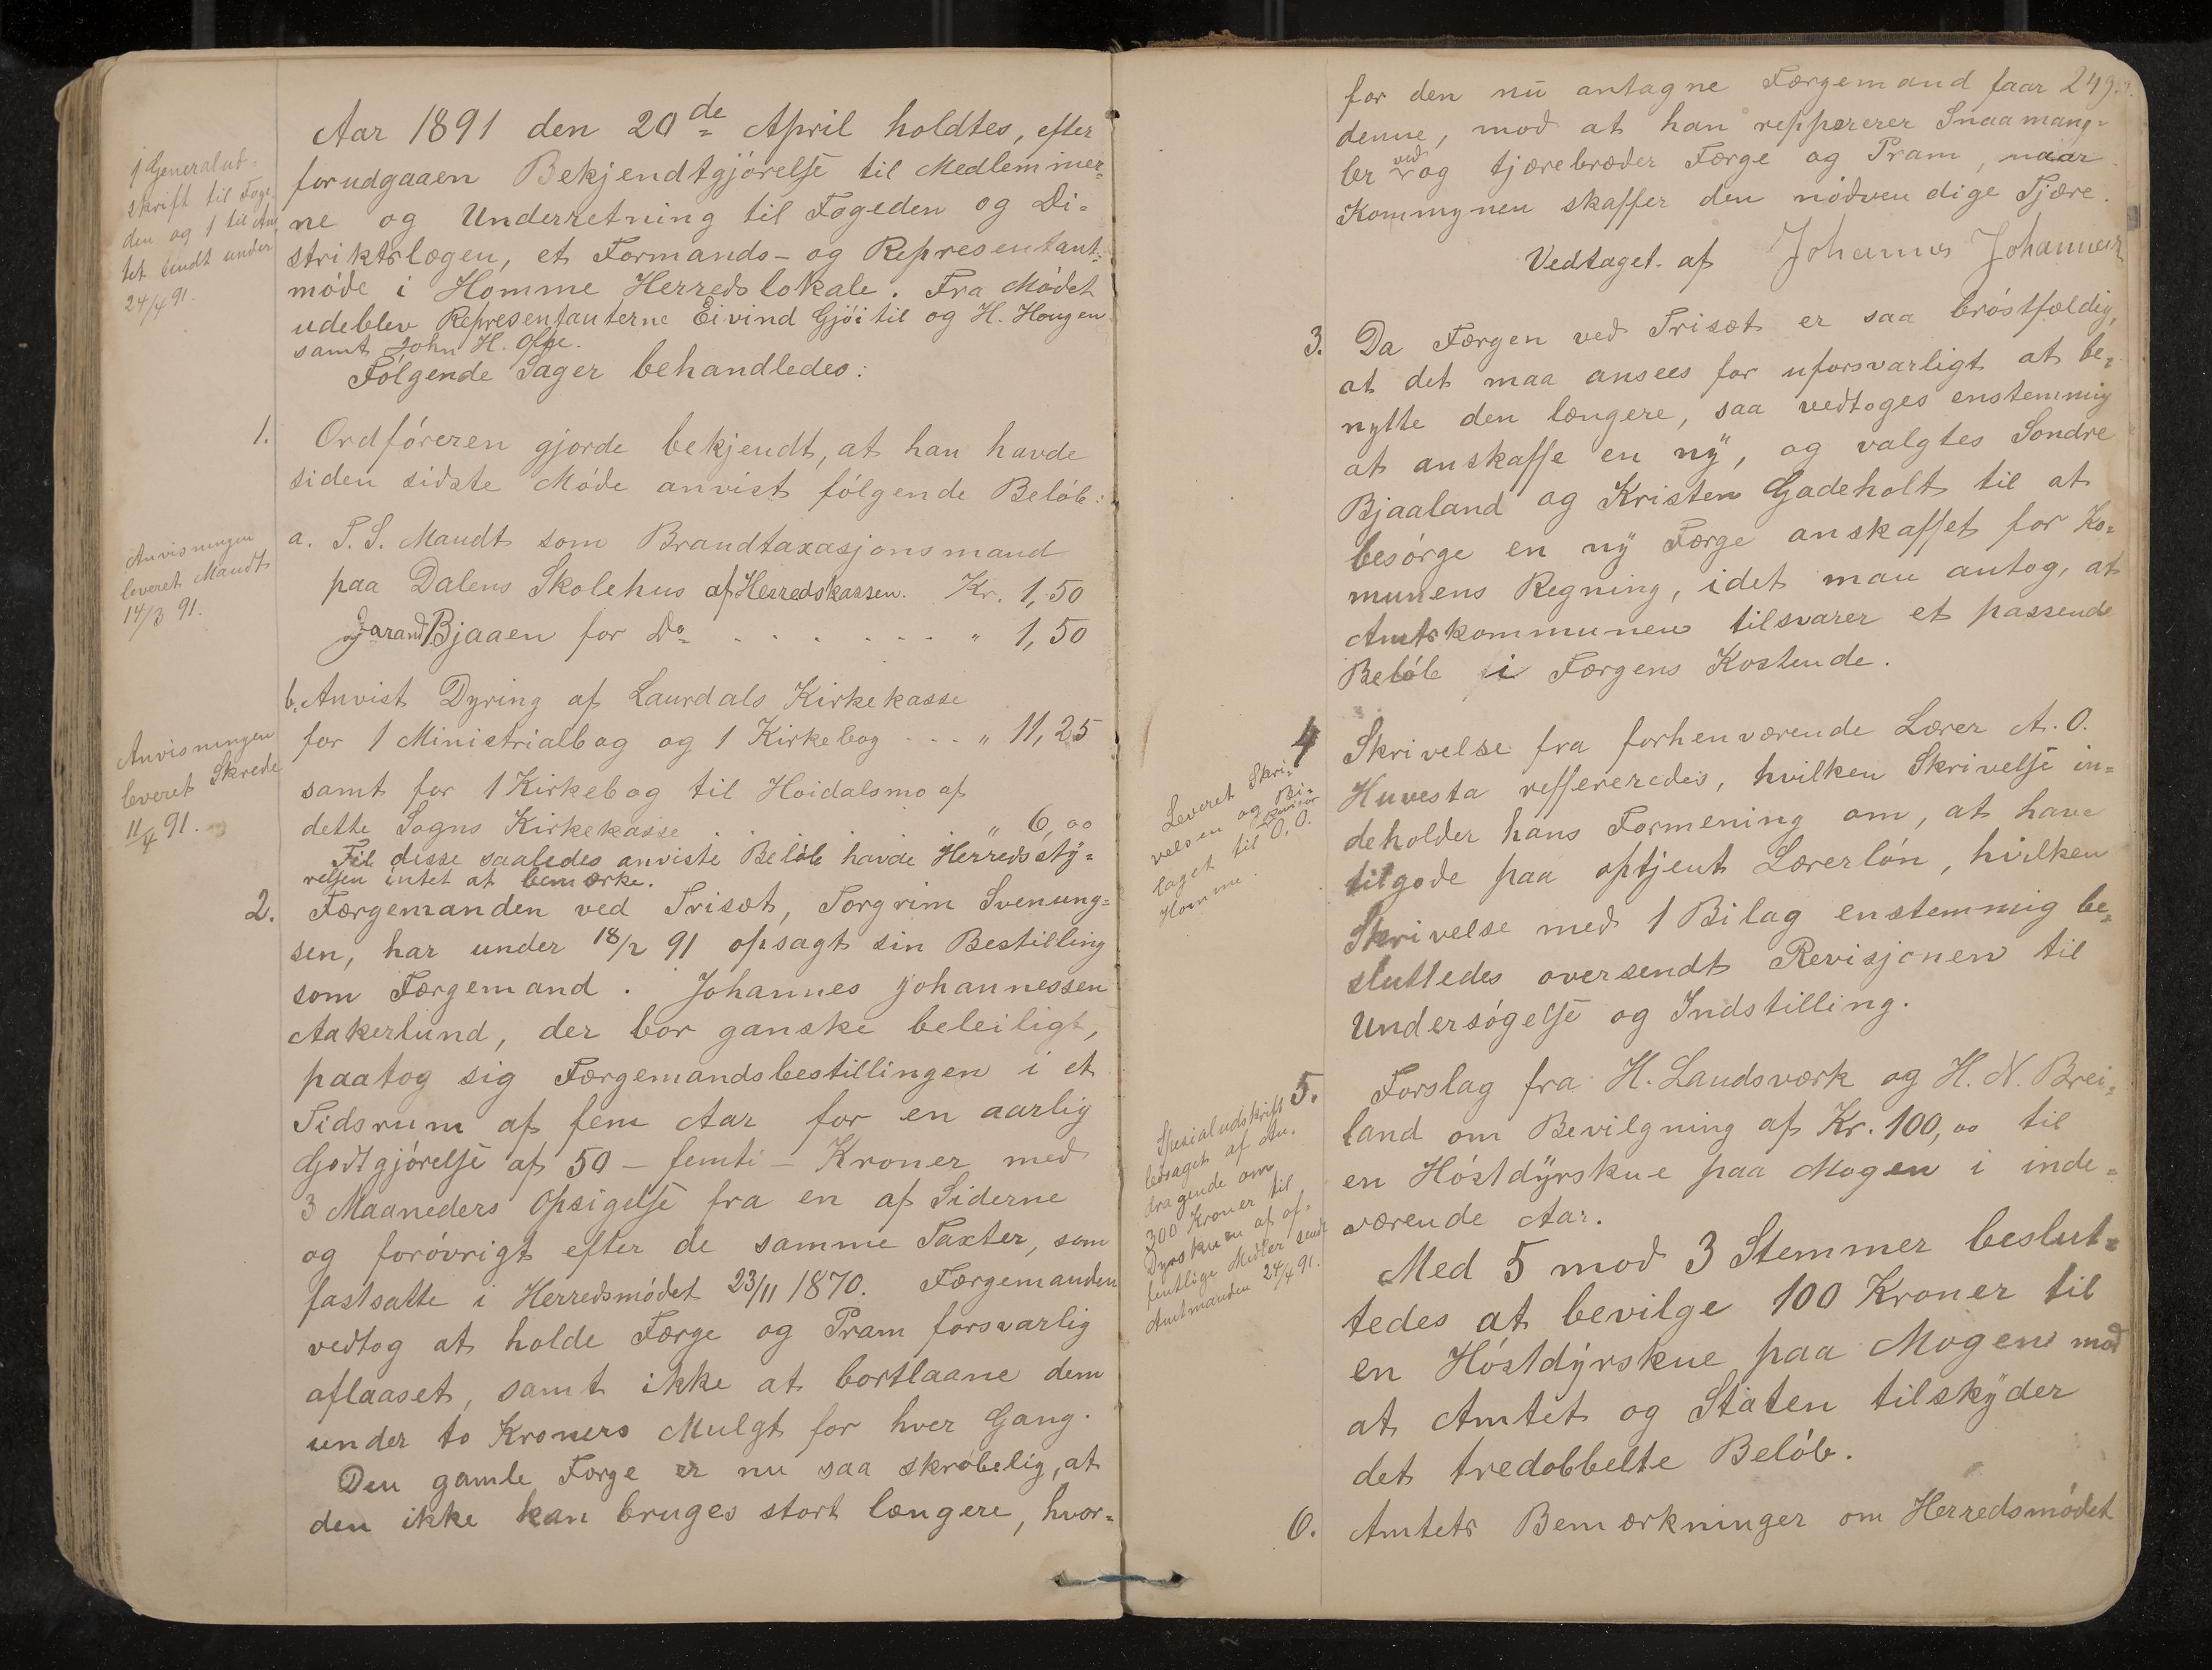 1 Generalut-
skrift til Foge-
den og 1 til Am
tet sendt under
24/4 91.
Aar 1891 den 20de April holdtes, efter
forudgaaen Bekjendtgjörelse til Medlemmer-
ne og Underretning til Fogeden og Di-
striktslægen, et Formands- og Representant-
möde i Homme Herredslokale. Fra Mödet
udeblev Representanterne Eivind Gjöitil og H. Hougen
samt John H. Ofte.
Fölgende Sager behandledes:
1. Ordföreren gjorde bekjendt, at han havde
siden sidste Möde anvist fölgende Belöb:
Anvisningen
leveret Mandt
14/3 91.
a. T. S. Mandt som Brandtaxasjonsmand
paa Dalens Skolehus af Herredskassen. Kr. 1,50
og Jarand Bjaaen for Do . . . . . . . " 1,50
b. Anvist Dyring af Laurdals Kirkekasse
for 1 Ministrialbog og 1 Kirkebog . . . " 11,25
Anvisningen
leveret Skrede
11/4 91.
samt for 1 Kirkebog til Hoidalsmo af
dette Sogns Kirkekasse . . . . . . " 6,00
Til disse saaledes anviste Belöb havde Herredssty-
relsen intet at bemærke.
2. Færgemanden ved Trisæt, Torgrim Svenung-
sen, har under 18/2 91 opsagt sin Bestilling
som Færgemand. Johannes Johannessen
Aakerlund, der bor ganske beleiligt,
paatog sig Færgemandsbestillingen i et
Tidsrum af fem Aar for en aarlig
Godtgjörelse af 50 - femti - Kroner med
3 Maaneders Opsigelse fra en af Siderne
og forövrigt efter de samme Taxter, som
fastsatte i Herredsmödet 23/11 1870. Færgemanden
vedtog at holde Færge og Pram forsvarlig
aflaaset, samt ikke at bortlaane dem
under to Kroners Mulgt for hver Gang.
Den gamle Færge er nu saa skröbelig, at
den ikke kan bruges stort længere, hvor-
249.
for den nu antagne Færgemand faar
denne, mod at han reppererer Smaamang-
ler ved og tjærebræder Færge og Pram, naar
Kommunen skaffer den nödvendige Tjære.
Vedtaget af Johannes Johannes
3. Da Færgen ved Trisæt er saa bröstfældig,
at det maa ansees for uforsvarligt at be-
nytte den længere, saa vedtoges enstemmig
at anskaffe en ny, og valgtes Sondre
Bjaaland og Kristen Gadeholt til at
besörge en ny Færge anskaffet for Ko-
munens Regning, idet man antog, at
Amtskommunen tilsvarer et passende
Belöb i Færgens Kostende.
4 Skrivelse fra forhenværende Lærer A. O.
Huvesta reffereredes, hvilken Skrivelse in-
deholder hans Formening om, at have
tilgode paa optjent Lærerlön, hvilken
Skrivelse med 1 Bilag enstemmig be-
sluttedes oversendt Revisjonen til
Undersögelse og Indstilling.
Leveret Skri-
velsen og Bi-
laget til Revisor O. O.
Homme.
5. Forslag fra H. Landsværk og H. N. Brei-
land om Bevilgning af Kr. 100,00 til
en Höstdyrskue paa Mogen i inde-
værende Aar.
Spesialudskrift
ledsaget af An-
dragende om
300 Kroner til
Dyrskuen af of-
fentlige Midler sendt
Amtmanden 24/4 91.
Med 5 mod 3 Stemmer beslut-
tedes at bevilge 100 Kroner til
en Höstdyrskue paa Mogen mod
at Amtet og Staten tilskyder
det tredobbelte Belöb.
6. Amtets Bemærkninger om Herredsmödet